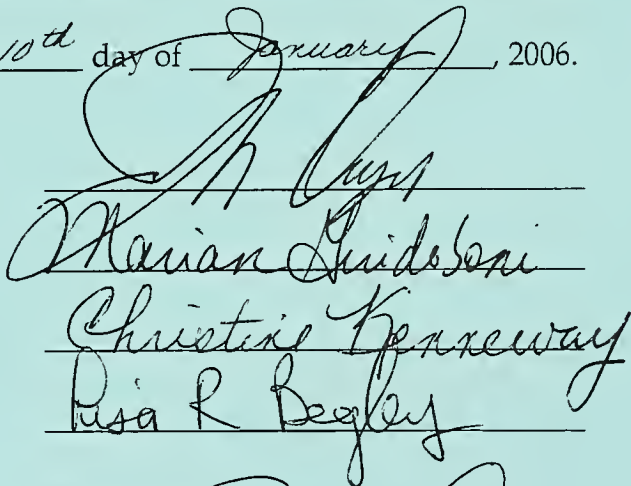 10th day of January, 2006.
Marian Guidoboni
Christine Kenneway
Lisa R Begley